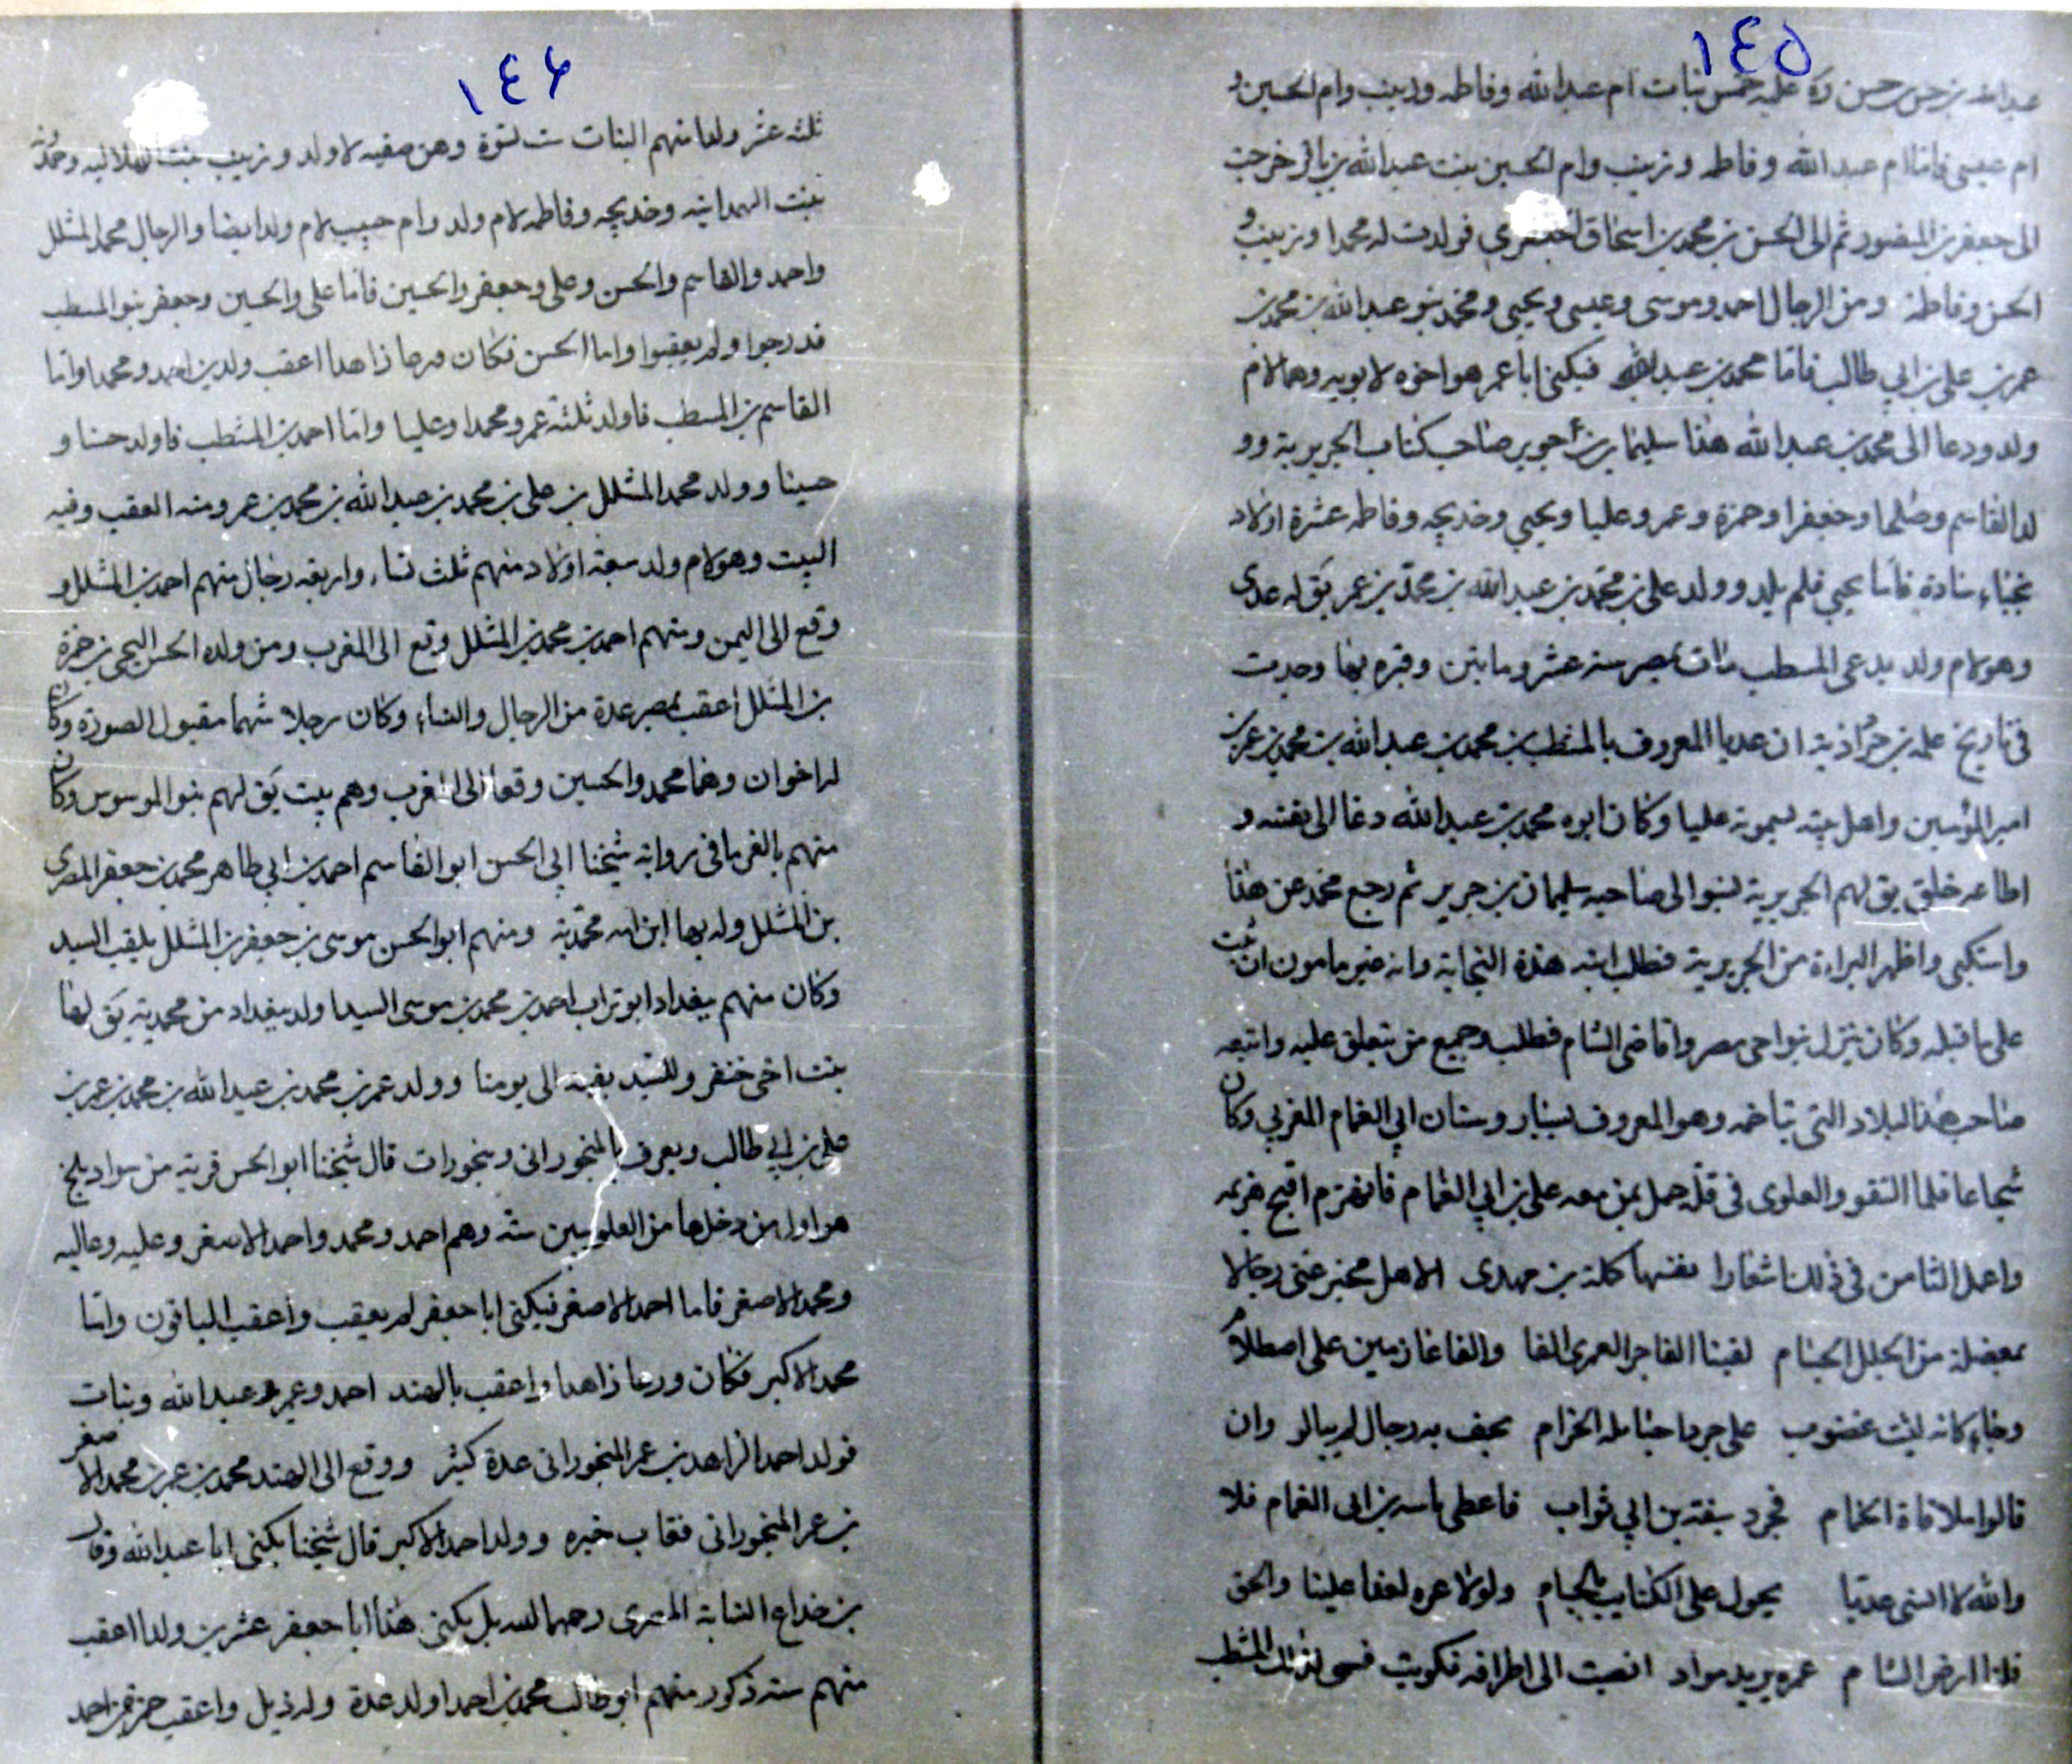 ١٤٥
ام عيسى فاما ام عبدالله وفاطمه وزينب وام الحسين بنت عبدالله بن خرجت
الى جعفر بن المنصور ثم الى الحسن بن محمد بن اسحاق الجعفري فولدت له محمدا وزينب و
الحسن وفاطمة ومن الرجال احمد وموسى وعيسى ويحيى ومحمد بنو عبدالله بن محمد بن
عمر بن على بن ابي طالب فاما محمد بن عبدالله فيكنى ابا عمر هو اخوه لابويه وهما لام
ولد ودعا الى محمد بن عبدالله هذا سليمان بن جرير صاحب كتاب الجريرية وو
لد القاسم وصلحا وجعفرا وحمزة وعمر وعليا ويحيي وخديجه وفاطمه عشرة اولاد
نجباء سادة فاما يحيي فلم يلد وولد على بن محمد بن عبدالله بن محمد بن عمر يق له عدى
وهو لام ولد يدعى المسطب مات بمصر سنه عشر ومايتين وقبره بها وجدت
فى تاريخ ان عديا المعروف بالمشطب بن محمد بن عبدالله بن محمد بن عمر بن
امير المؤمنين واهل بيته يسمونه عليا وكان ابوه محمد بن عبدالله دعا الى نفسه و
اطاعه خلق يق لهم الجريرية نسبوا الى صاحبه سليمان بن جرير ثم رجع محمد عن هذا
واظهر البراءة من الجريرية فطلب ابنه هذه النجابة وانه غير مامون ان يثب
على ما قبله وكان ينزل بنواحى مصر واقاصى الشام فطلب وجميع من يتعلق عليه واتبعه
صاحب هذا البلاد التى تتاخمه وهو المعروف ابي الغمام المغربي وكان
شجاعا فلما التقو والعلوى فى قلة حمل بمن معه على بن ابي الغمام فانهزم اقبح هزيمه
واعمل الثامن فى ذلك اشعارا بن مهدى الا هل مخبر عنى رجالا
لقينا الفاجر العمرى الفا والفا عازمين على اصطلام
وجاء كانه ليث غضوب على جرداء الحزام يحف به رجال لم يبالو وان
قالوا ملاقاة الحمام فجرد سيفه بن ابي ثواب فاعطى باسه بن ابى الغمام فلا
والله لا انسى عديا يجول على الكتايب بالحسام ولولا عمره لعفا علينا والحق
فلنا ارض الشام عمره يريد مواد انصبت الى اطرافه فكويت فسمى لذلك المشطب
١٤٦
ثلثه عشر ولدا منهم البنات ست نسوة وهن صفيه لام ولد وزينب بنت الهلاليه وحمدة
بنت الهمدانيه وخديجه وفاطمه لام ولد وام حبيب لام ولد ايضا والرجال محمد المشلل
واحمد والقاسم والحسن وعلى وجعفر والحسين فاما على والحسين وجعفر بنو المسطب
فدرجوا ولم يعقبوا واما الحسن فكان ورعا زاهدا اعقب ولدين احمد ومحمدا واما
القاسم بن المسطب فاولد ثلثة عمر ومحمدا وعليا واما احمد بن المشطب فاولد حسنا و
حسينا وولد محمد المشلل بن على بن محمد بن عبدالله بن محمد بن عمر ومنه العقب وفيه
البيت وهو لام ولد سبعة اولاد منهم ثلث نساء واربعه رجال منهم احمد بن المشلل و
وقع الى اليمن ومنهم احمد بن محمد بن المشلل وقع الى المغرب ومن ولده الحسن بن حمزة
بن المشلل اعقب بمصر عدة من الرجال والنساء وكان رجلا شهما مقبول الصورة وكان
له اخوان وهما محمد والحسين وقعا الى المغرب وهم بيت يق لهم بنو الموسوس وكان
منهم بالفرما فى رواية شيخنا ابى الحسن ابو القاسم احمد بن ابي طاهر محمد بن جعفر المصرى
بن المشلل وله بها ابن امه محمدية ومنهم ابو الحسن موسى بن جعفر بن المشلل يلقب السيد
وكان منهم ببغداد ابو تراب احمد بن محمد بن موسى السيد اولد ببغداد من محمدية يق لها
بنت اخى خنفر وللسيد بقيه الى يومنا وولد عمر بن محمد بن عبدالله بن محمد بن عمر بن
على بن ابي طالب ويعرف بالمنجورانى ومنجوران قال شيخنا ابو الحسن قرية من سواد بلخ
هو اول من دخلها من العلويين ستة وهم احمد ومحمد واحمد الاصغر وعليه وعاليه
ومحمد الاصغر فاما احمد الاصغر فيكنى ابا جعفر لم يعقب واعقب الباقون واما
محمد الاكبر فكان ورعا زاهدا واعقب بالهند احمد وعمر وعبدالله وبنات
فولد احمد الزاهد بن عمر المنجورانى عدة كثير ووقع الى الهند محمد بن عمر بن محمد الاصغر
بن عمر المنجورانى فغاب خبره وولد احمد الاكبر قال شيخنا يكنى ابا عبدالله وقال
بن خداع النسابة المصرى رحمهما الله بل يكنى هذا ابا جعفر عشرين ولدا اعقب
منهم سته ذكور منهم ابو طالب محمد بن احمد اولد عدة وله ذيل واعقب حمزة بن احمد